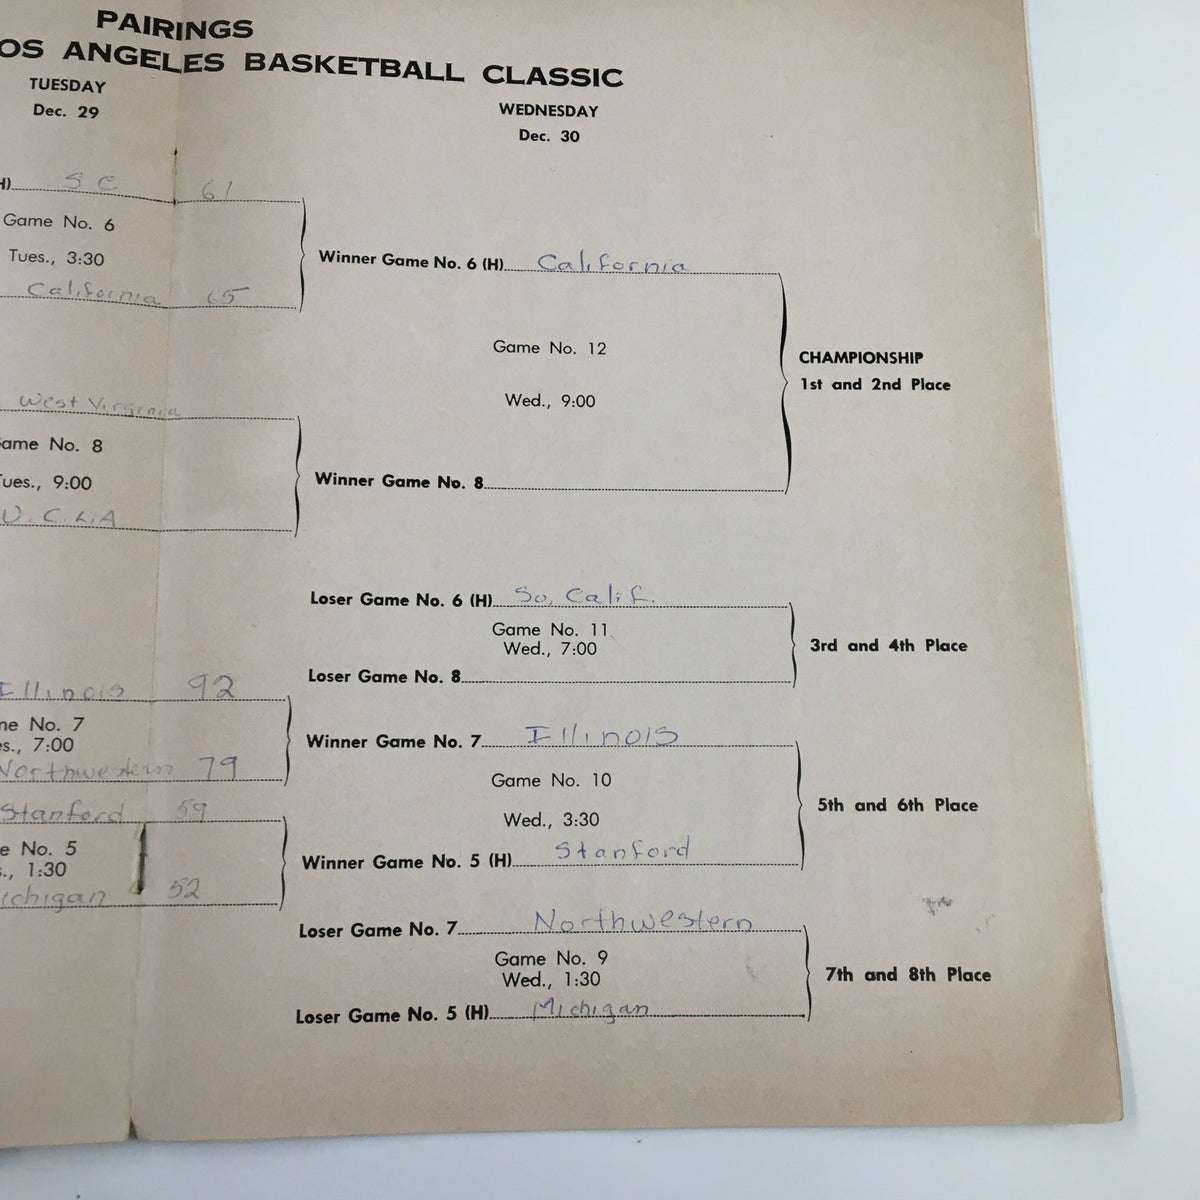 PAIRINGS
OS ANGELES BASKETBALL CLASSIC
TUESDAY
Dec. 29
WEDNESDAY
Dec. 30
H) SC 61
Game No. 6
Tues., 3:30
California 65
Winner Game No. 6 (H) California
Game No. 12
Wed., 9:00
CHAMPIONSHIP
1st and 2nd Place
West Virginia
ame No. 8
ues., 9:00
U.C.L.A
Winner Game No. 8
Loser Game No. 6 (H) So. Calif.
Game No. 11
Wed., 7:00
3rd and 4th Place
Loser Game No. 8
Illinois 92
me No. 7
es., 7:00
Northwestern 79
Winner Game No. 7 Illinois
Game No. 10
Wed., 3:30
5th and 6th Place
Stanford 59
e No. 5
s., 1:30
ichigan 52
Winner Game No. 5 (H) Stanford
Loser Game No. 7 Northwestern
Game No. 9
Wed., 1:30
7th and 8th Place
Loser Game No. 5 (H) Michigan